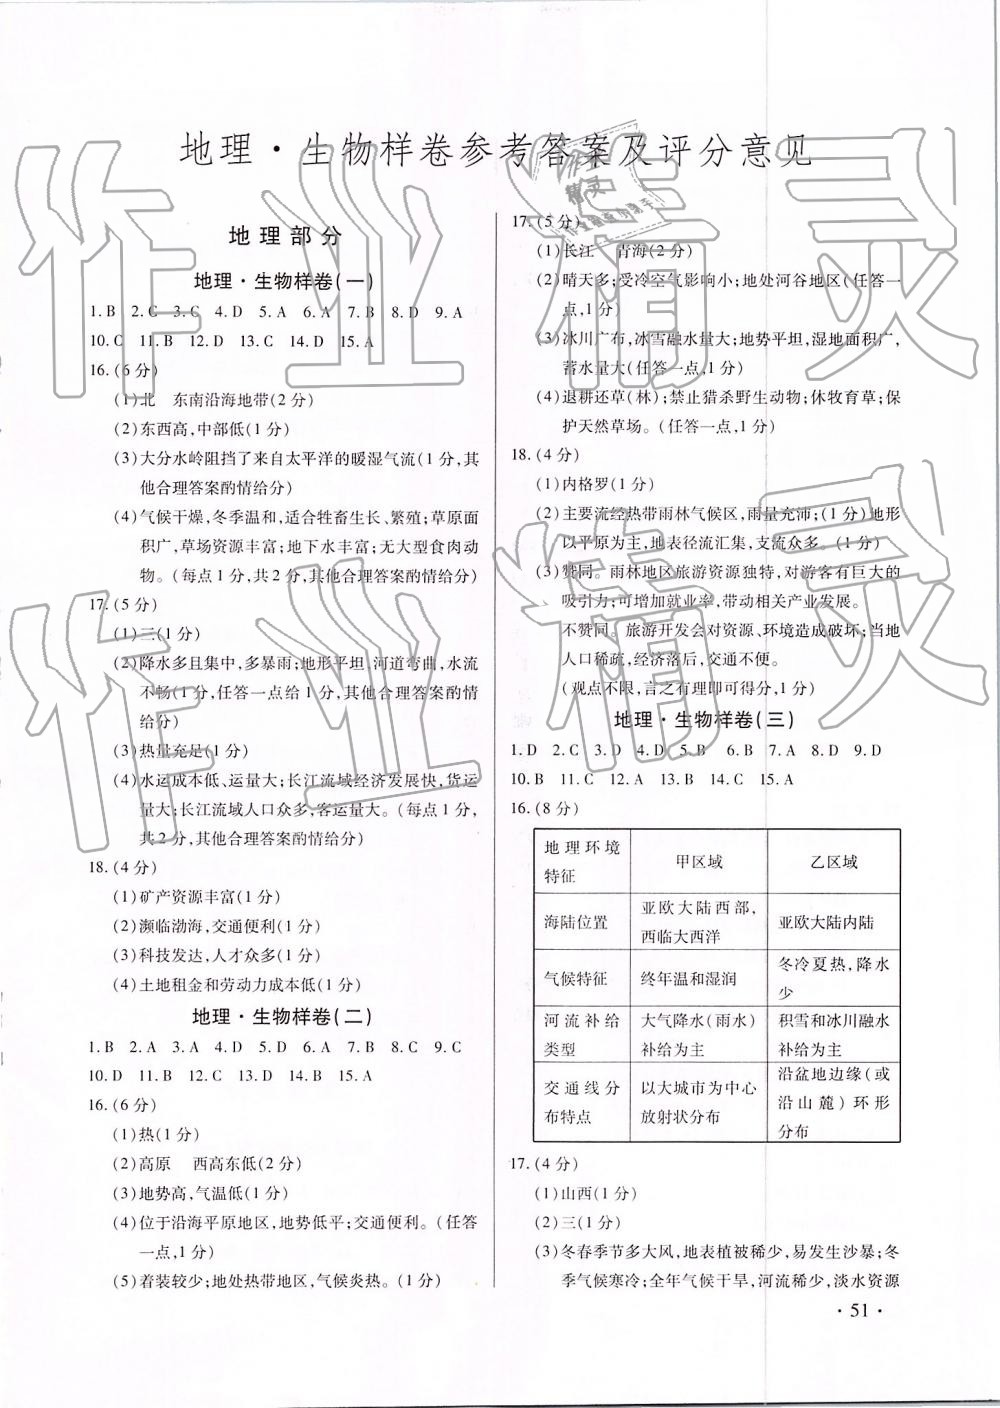 地理·生物样卷参考答案及评分意见
地理部分
地理·生物样卷(一)
1.B 2.C 3.C 4.D 5.A 6.A 7.B 8.D 9.A
10.C 11.B 12.D 13.C 14.D 15.A
16.(6分)
(1)北 东南沿海地带(2分)
(2)东西高,中部低(1分)
(3)大分水岭阻挡了来自太平洋的暖湿气流(1分,其
他合理答案酌情给分)
(4)气候干燥,冬季温和,适合牲畜生长、繁殖;草原面
积广,草场资源丰富;地下水丰富;无大型食肉动
物。(每点1分,共2分,其他合理答案酌情给分)
17.(5分)
(1)三(1分)
(2)降水多且集中,多暴雨;地形平坦,河道弯曲,水流
不畅(1分,任答一点给1分,其他合理答案酌情
给分)
(3)热量充足(1分)
(4)水运成本低、运量大;长江流域经济发展快,货运
量大;长江流域人口众多,客运量大。(每点1分,
共2分,其他合理答案酌情给分)
18.(4分)
(1)矿产资源丰富(1分)
(2)濒临渤海,交通便利(1分)
(3)科技发达,人才众多(1分)
(4)土地租金和劳动力成本低(1分)
地理·生物样卷(二)
1.B 2.A 3.A 4.D 5.D 6.A 7.B 8.C 9.C
10.D 11.B 12.D 13.C 14.B 15.A
16.(6分)
(1)热(1分)
(2)高原 西高东低(2分)
(3)地势高,气温低(1分)
(4)位于沿海平原地区,地势低平;交通便利。(任答
一点,1分)
(5)着装较少;地处热带地区,气候炎热。(1分)
17.(5分)
(1)长江 青海(2分)
(2)晴天多;受冷空气影响小;地处河谷地区(任答一
点,1分)
(3)冰川广布,冰雪融水量大;地势平坦,湿地面积广,
蓄水量大(任答一点,1分)
(4)退耕还草(林);禁止猎杀野生动物;休牧育草;保
护天然草场。(任答一点,1分)
18.(4分)
(1)内格罗(1分)
(2)主要流经热带雨林气候区,雨量充沛;(1分)地形
以平原为主,地表径流汇集,支流众多。(1分)
(3)赞同。雨林地区旅游资源独特,对游客有巨大的
吸引力;可增加就业率,带动相关产业发展。
不赞同。旅游开发会对资源、环境造成破坏;当地
人口稀疏,经济落后,交通不便。
(观点不限,言之有理即可得分,1分)
地理·生物样卷(三)
1.D 2.C 3.D 4.D 5.B 6.B 7.A 8.D 9.D
10.B 11.C 12.A 13.B 14.C 15.A
16.(8分)
地理环境特征 甲区域 乙区域
海陆位置 亚欧大陆西部,西临大西洋 亚欧大陆内陆
气候特征 终年温和湿润 冬冷夏热,降水少
河流补给类型 大气降水(雨水)补给为主 积雪和冰川融水补给为主
交通线分布特点 以大城市为中心放射状分布 沿盆地边缘(或沿山麓)环形分布
17.(4分)
(1)山西(1分)
(2)三(1分)
(3)冬春季节多大风,地表植被稀少,易发生沙暴;冬
季气候寒冷;全年气候干旱,河流稀少,淡水资源
·51·
作业精灵
作业精灵